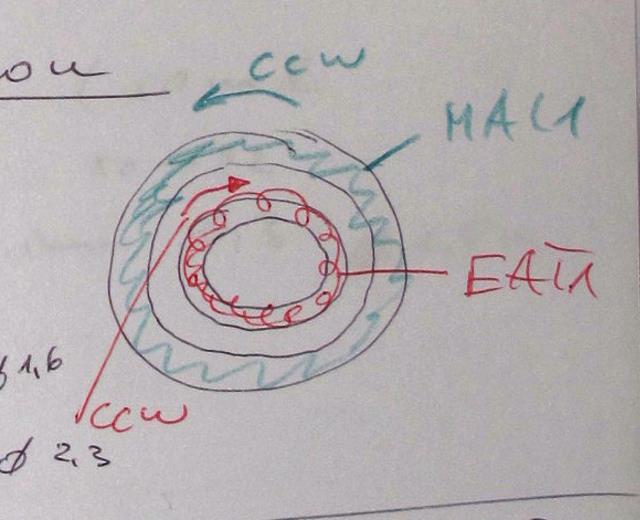 CCW
MAC1
EAT1
1,6
CCW
Ø 2,3